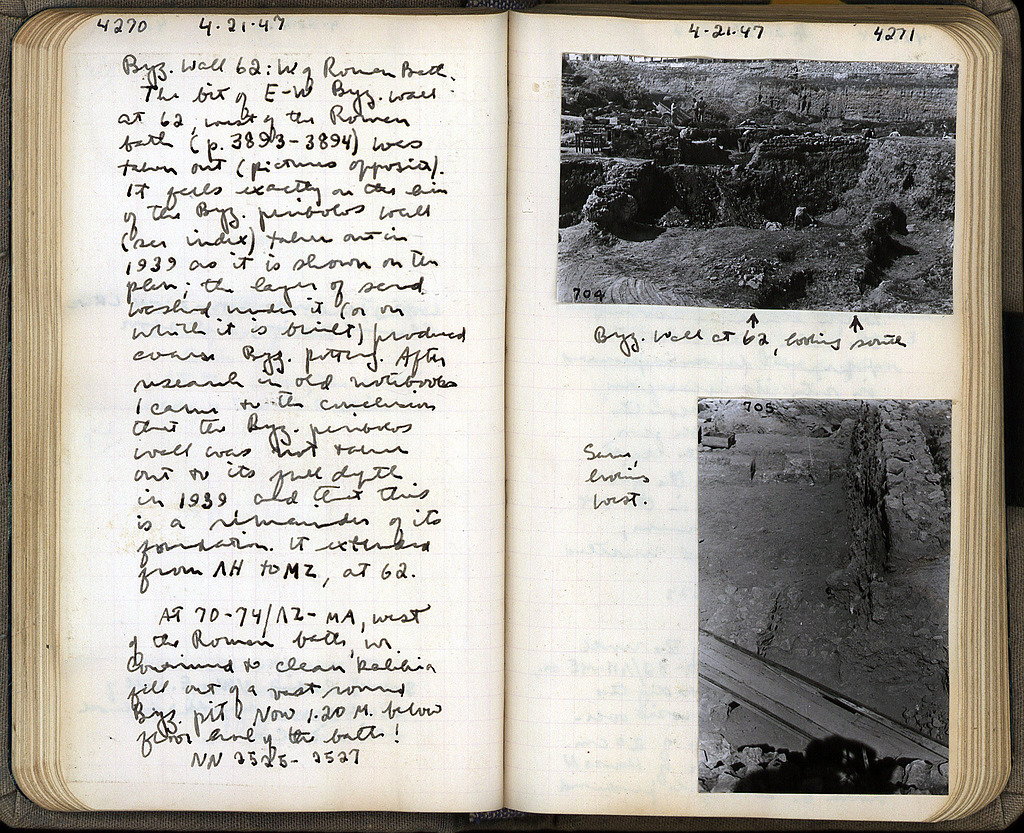 4270 4-21-47
Byz. Wall 62: W of Roman Bath.
The bit of E-W Byz. wall
at 62, west of the Roman
bath (p. 3893-3894) was
taken out (pictures opposite).
It falls exactly on the line
of the Byz. peribolos wall
(see index) taken out in
1939 as it is shown on the
plan; the layer of sand
washed under it (or on
which it is built) produced
coarse Byz. pottery. After
research in old notebooks
I came to the conclusion
that the Byz. peribolos
wall was not taken
out to its full depth
in 1939 and that this
is a remainder of its
foundation. It extended
from ΛH to MZ, at 62.
AT 70-74/ΛZ-MA, west
of the Roman bath, we
continued to clean
fill out of a vast round
Byz. pit. Now 1.20 M. below
floor level of the bath!
NN 2525-2527
4-21-47 4271
704
Byz. Wall at 62, looking south
705
Same,
looking
west.